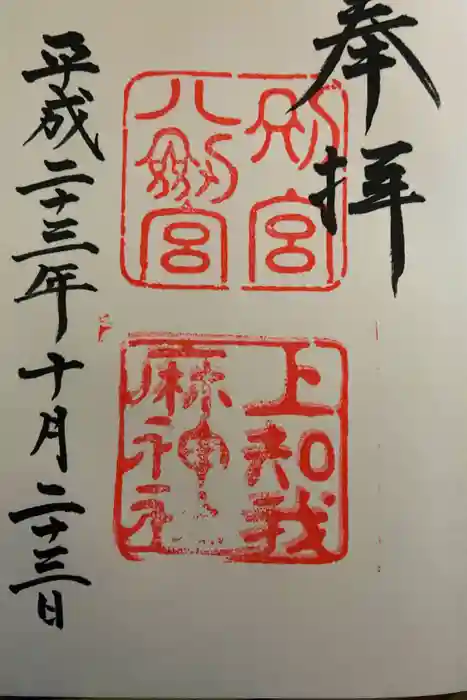 奉拝
別宮
八剱宮
上知我
麻神社
平成二十三年十月二十三日